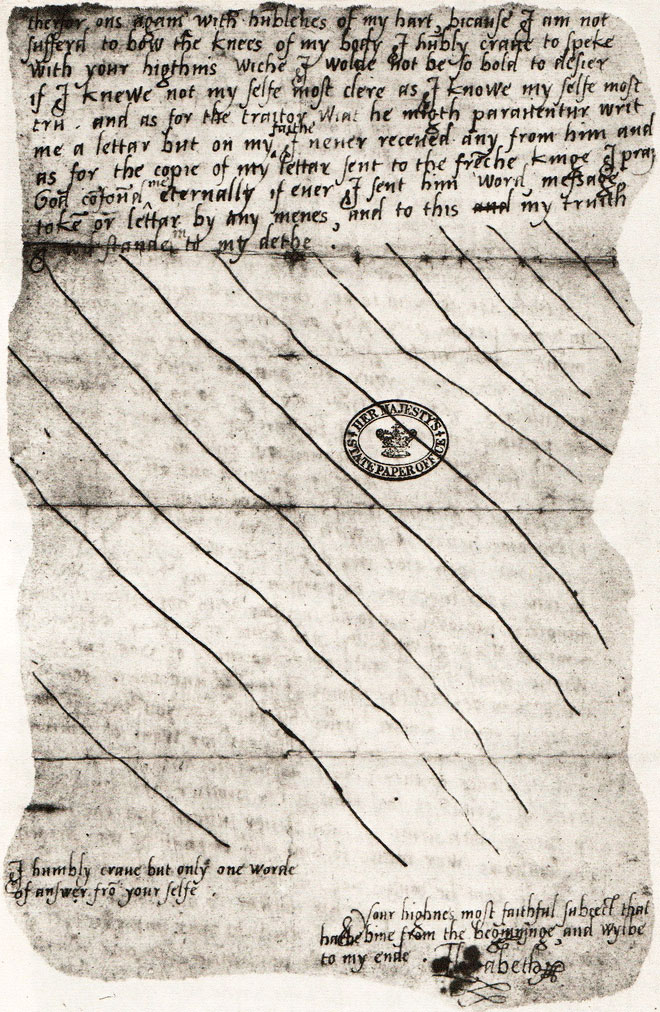 therfor ons again with hublenes of my hart, bicause I am not
sufferd to bow the knees of my body I hubly crave to speke
with your higthnis wiche I wolde not be so bold to desier
if I knewe not my selfe most clere as I knowe my selfe most
tru. and as for the traitor Wiat he migth paraventur writ
me a lettar but on my faithe I never receved any from him and
as for the copie of my lettar sent to the freche kinge I pray
God cofoud me eternally if ever I sent him word, message,
token or lettar by any menes, and to this and my truith
I wil stande in til my dethe.
HER MAJESTY'S
STATE PAPER OFFICE
I humbly crave but only one worde
of answer fro your selfe.
Your highnes most faithful subject that
hathe bine from the beginninge, and wylbe
to my ende.
Elizabeth